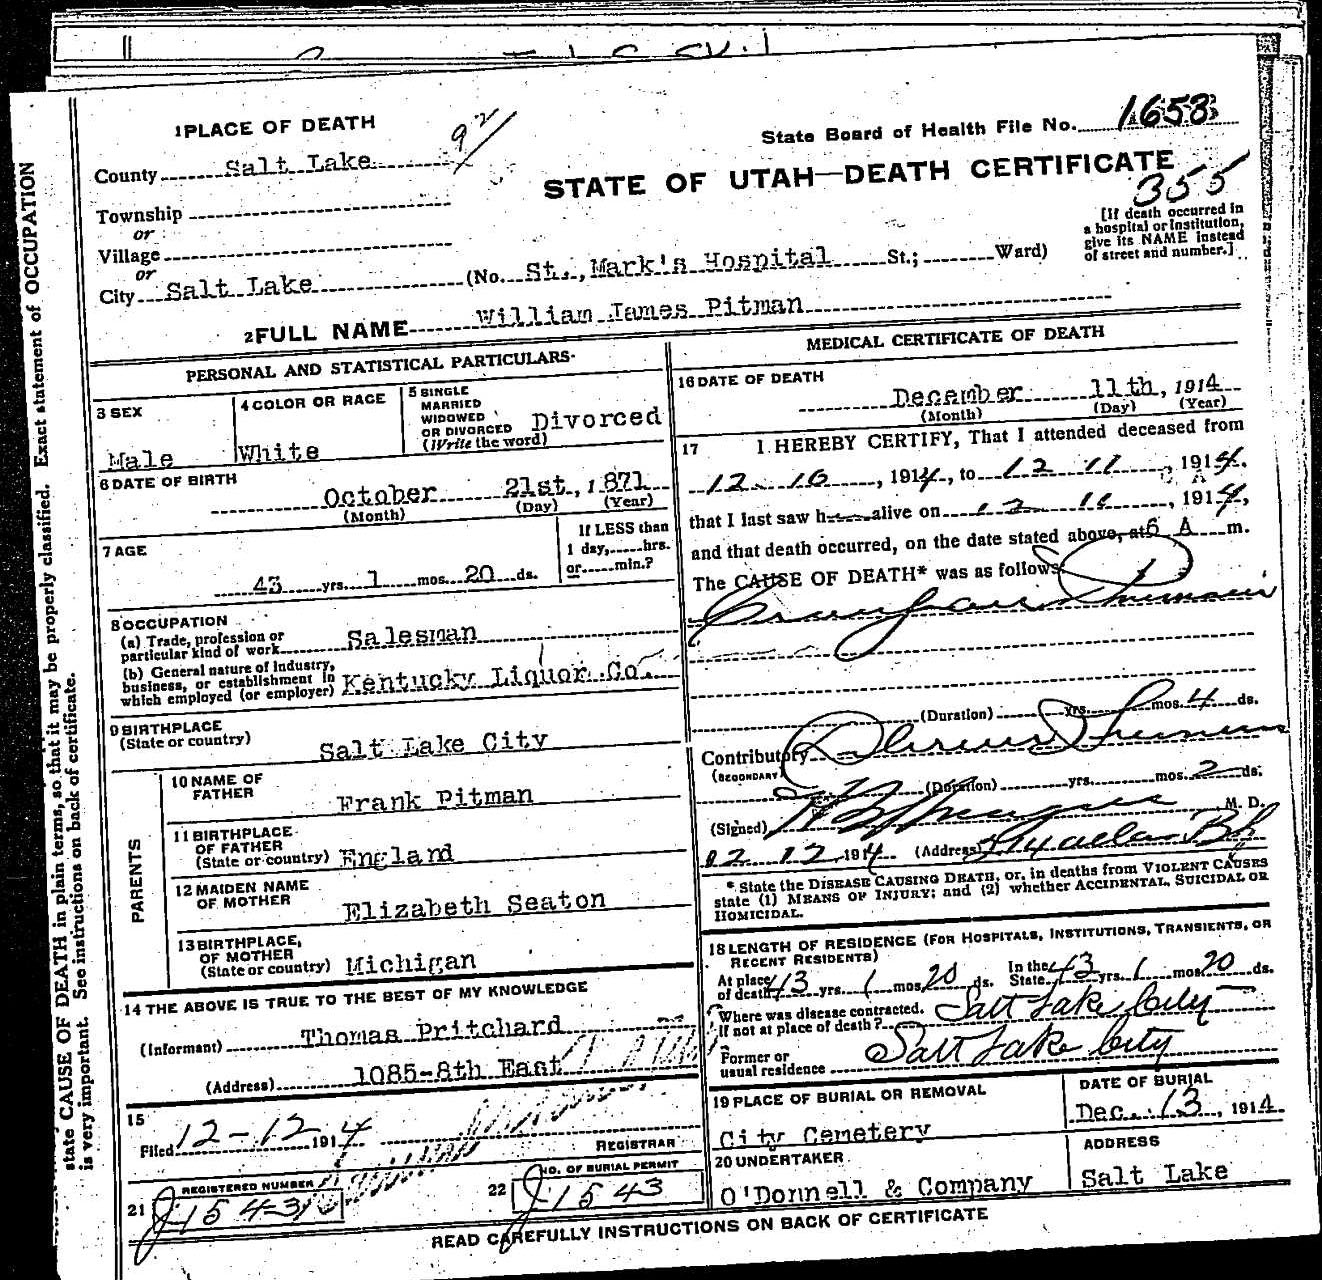 1 PLACE OF DEATH
State Board of Health File No. 1658
County Salt Lake
92
STATE OF UTAH—DEATH CERTIFICATE
355
Township
or
Village
or
City Salt Lake (No. St., Mark's Hospital St.; Ward)
[If death occurred in
a hospital or institution,
give its NAME instead
of street and number.]
2 FULL NAME William James Pitman
PERSONAL AND STATISTICAL PARTICULARS
3 SEX
Male
4 COLOR OR RACE
White
5 SINGLE
MARRIED
WIDOWED
OR DIVORCED
(Write the word)
Divorced
6 DATE OF BIRTH
October 21st, 1871
(Month) (Day) (Year)
7 AGE
43 yrs. 1 mos. 20 ds.
If LESS than
1 day, hrs.
or min.?
8 OCCUPATION
(a) Trade, profession or
particular kind of work Salesman
(b) General nature of industry,
business, or establishment in
which employed (or employer) Kentucky Liquor Co.
9 BIRTHPLACE
(State or country)
Salt Lake City
PARENTS
10 NAME OF
FATHER
Frank Pitman
11 BIRTHPLACE
OF FATHER
(State or country) England
12 MAIDEN NAME
OF MOTHER
Elizabeth Seaton
13 BIRTHPLACE,
OF MOTHER
(State or country) Michigan
14 THE ABOVE IS TRUE TO THE BEST OF MY KNOWLEDGE
(Informant) Thomas Pritchard
(Address) 1085-8th East
15
Filed 12-12 1914
REGISTRAR
21 REGISTERED NUMBER
J1543
22 NO. OF BURIAL PERMIT
J1543
MEDICAL CERTIFICATE OF DEATH
16 DATE OF DEATH
December 11th, 1914
(Month) (Day) (Year)
17 I HEREBY CERTIFY, That I attended deceased from
12 10, 1914, to 12 11, 1914.
that I last saw h alive on 12 11, 1914,
and that death occurred, on the date stated above, at 6 A m.
The CAUSE OF DEATH* was as follows:
(Duration) yrs. mos. 4 ds.
Contributory
(SECONDARY)
(Duration) yrs. mos. 2 ds.
(Signed) M. D.
12 12 1914 (Address)
* State the DISEASE CAUSING DEATH, or, in deaths from VIOLENT CAUSES
state (1) MEANS OF INJURY; and (2) whether ACCIDENTAL, SUICIDAL OR
HOMICIDAL.
18 LENGTH OF RESIDENCE (FOR HOSPITALS, INSTITUTIONS, TRANSIENTS, OR
RECENT RESIDENTS)
At place
of death 43 yrs. 1 mos. 20 ds.
In the
State 43 yrs. 1 mos. 20 ds.
Where was disease contracted,
If not at place of death? Salt Lake City
Former or
usual residence Salt Lake City
19 PLACE OF BURIAL OR REMOVAL
City Cemetery
DATE OF BURIAL
Dec. 13, 1914
20 UNDERTAKER
O'Donnell & Company
ADDRESS
Salt Lake
READ CAREFULLY INSTRUCTIONS ON BACK OF CERTIFICATE
state CAUSE OF DEATH in plain terms, so that it may be properly classified. Exact statement of OCCUPATION
is very important. See instructions on back of certificate.